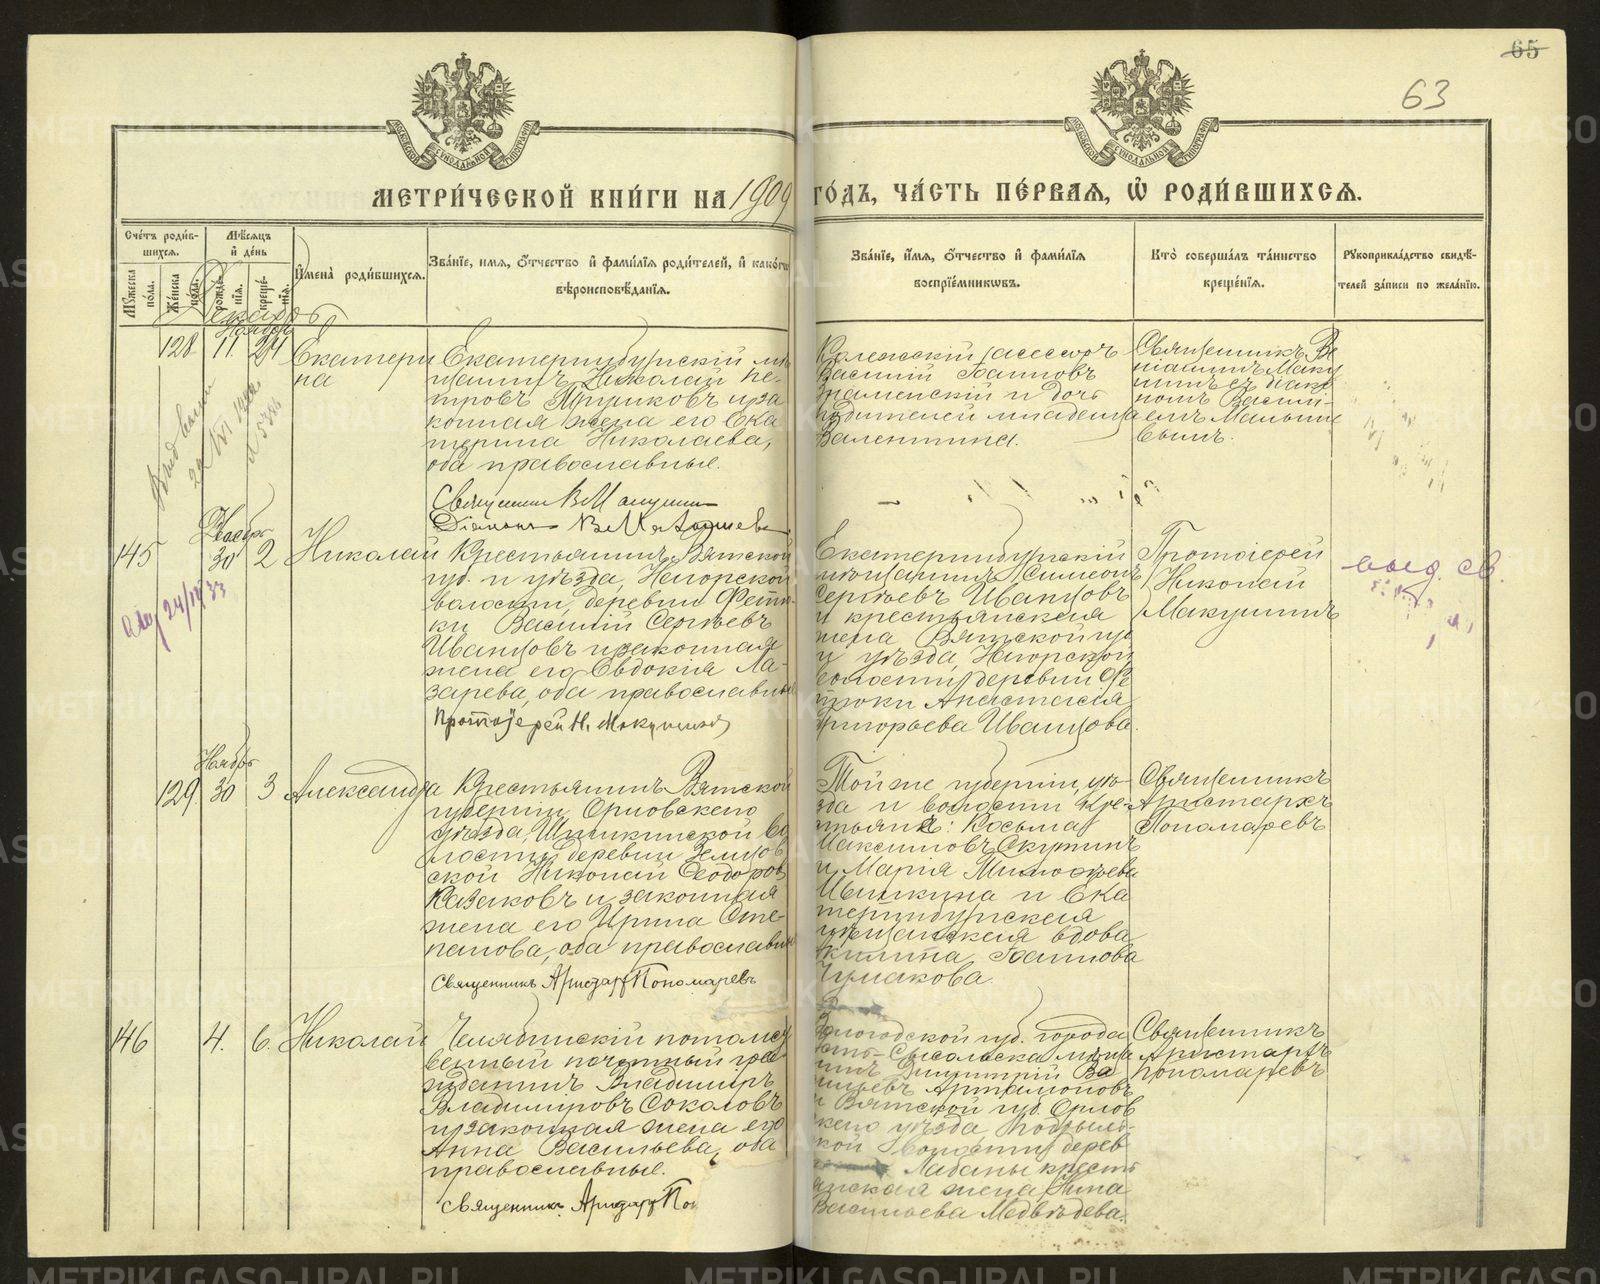 65
63
МОСКОВСКОЙ СѴНОДАЛЬНОЙ ТИПОГРАФІИ
МОСКОВСКОЙ СѴНОДАЛЬНОЙ ТИПОГРАФІИ
МЕТРИ́ЧЕСКОЙ КНИ́ГИ НА 1909 ГО́ДЪ, ЧА́СТЬ ПЕ́РВАЯ, Ѡ҆ РОДИ́ВШИХСѦ.
Сче́тъ роди́в-
шихся.
Мꙋжеска по́ла.
Же́нска по́ла.
Мѣ́сяцъ и҆ де́нь
рожде́-
нїя.
креще́-
нїя.
И҆мена̀ роди́вшихся.
Зва́нїе, имя, ѻ҆́тчество и҆ фами́лїя роди́телей, и҆ како́гѡ
вѣроисповѣ́данїя.
Зва́нїе, и҆́мя, ѻ҆́тчество и҆ фами́лїя
воспрїе́мникѡвъ.
Кто̀ соверша́лъ та́инство
креще́нїя.
Рꙋкоприкла́дство свидѣ́-
телей за́писи по жела́нїю.
Декабрь
Ноябрь
128 11. 24
Екатери
на
Екатеринбургскій мѣ
щанинъ Николай Пе-
тровъ и за
конная жена его Ека
терина Николаева,
оба православные.
Священник В Макушин
Диаконъ
Колежскій ассесоръ
Василій Іоанновъ
Знаменскій и дочь
родителей младенца
Валентина.
Священникъ Ве
ніаминъ Маку
шинъ съ діако
номъ Васили-
емъ Малыше
вымъ.
Ноябрь
145 30 2 Николай
24/IV 33
Крестьянинъ Вятской
губ. и уѣзда, Нагорской
волости, деревни Фетю-
ки Василій Сергѣевъ
Иванцовъ и законная
жена его Евдокія Ла-
зарева, оба православные
Протоіерей Н. Макушинъ
Екатеринбургскій
мѣщанинъ Симеонъ
Сергѣевъ Иванцовъ
и крестьянская
жена Вятской гу
и уѣзда, Нагорской
волости деревни Фе
тюки Анастасія
Григорьева Иванцова.
Протоіерей
Николай
Макушинъ
выд. св.
Ноябрь
129 30 3 Александра
Крестьянинъ Вятской
губерніи Орловскаго
уѣзда, Шишкинской во
лости, деревни Земцов
ской Николай Ѳеодоров
Казаковъ и законная
жена его Ирина Сте-
панова, оба православные
Священникъ Аристархъ Пономаревъ
Той же губерніи, уѣз-
да и волости кре-
стьяне: Косьма
Максимовъ Скутинъ
и Марія Тимофеева
Ившкина и Ека
теринбургская
мѣщанская вдова
Акилина Іоаннова
Чумакова.
Священникъ
Аристархъ
Пономаревъ
146 4. 6. Николай
Челябинскій потомст
венный почетный граж
данинъ Владиміръ
Владиміровъ Соколовъ
и законная жена его
Анна Васильева, оба
православные.
Священникъ Аристархъ По
Вологодской губ. города
Усть-Сысольска мѣща
нинъ Димитрій Ва
сильевъ Артамоновъ
и Вятской губ. Орлов
скаго уѣзда
ской волости дерев
Лабаны кресть
янская жена Нина
Васильева Медвѣдева.
Священникъ
Аристархъ
Пономаревъ
METRIKI.GASO-URAL.RU